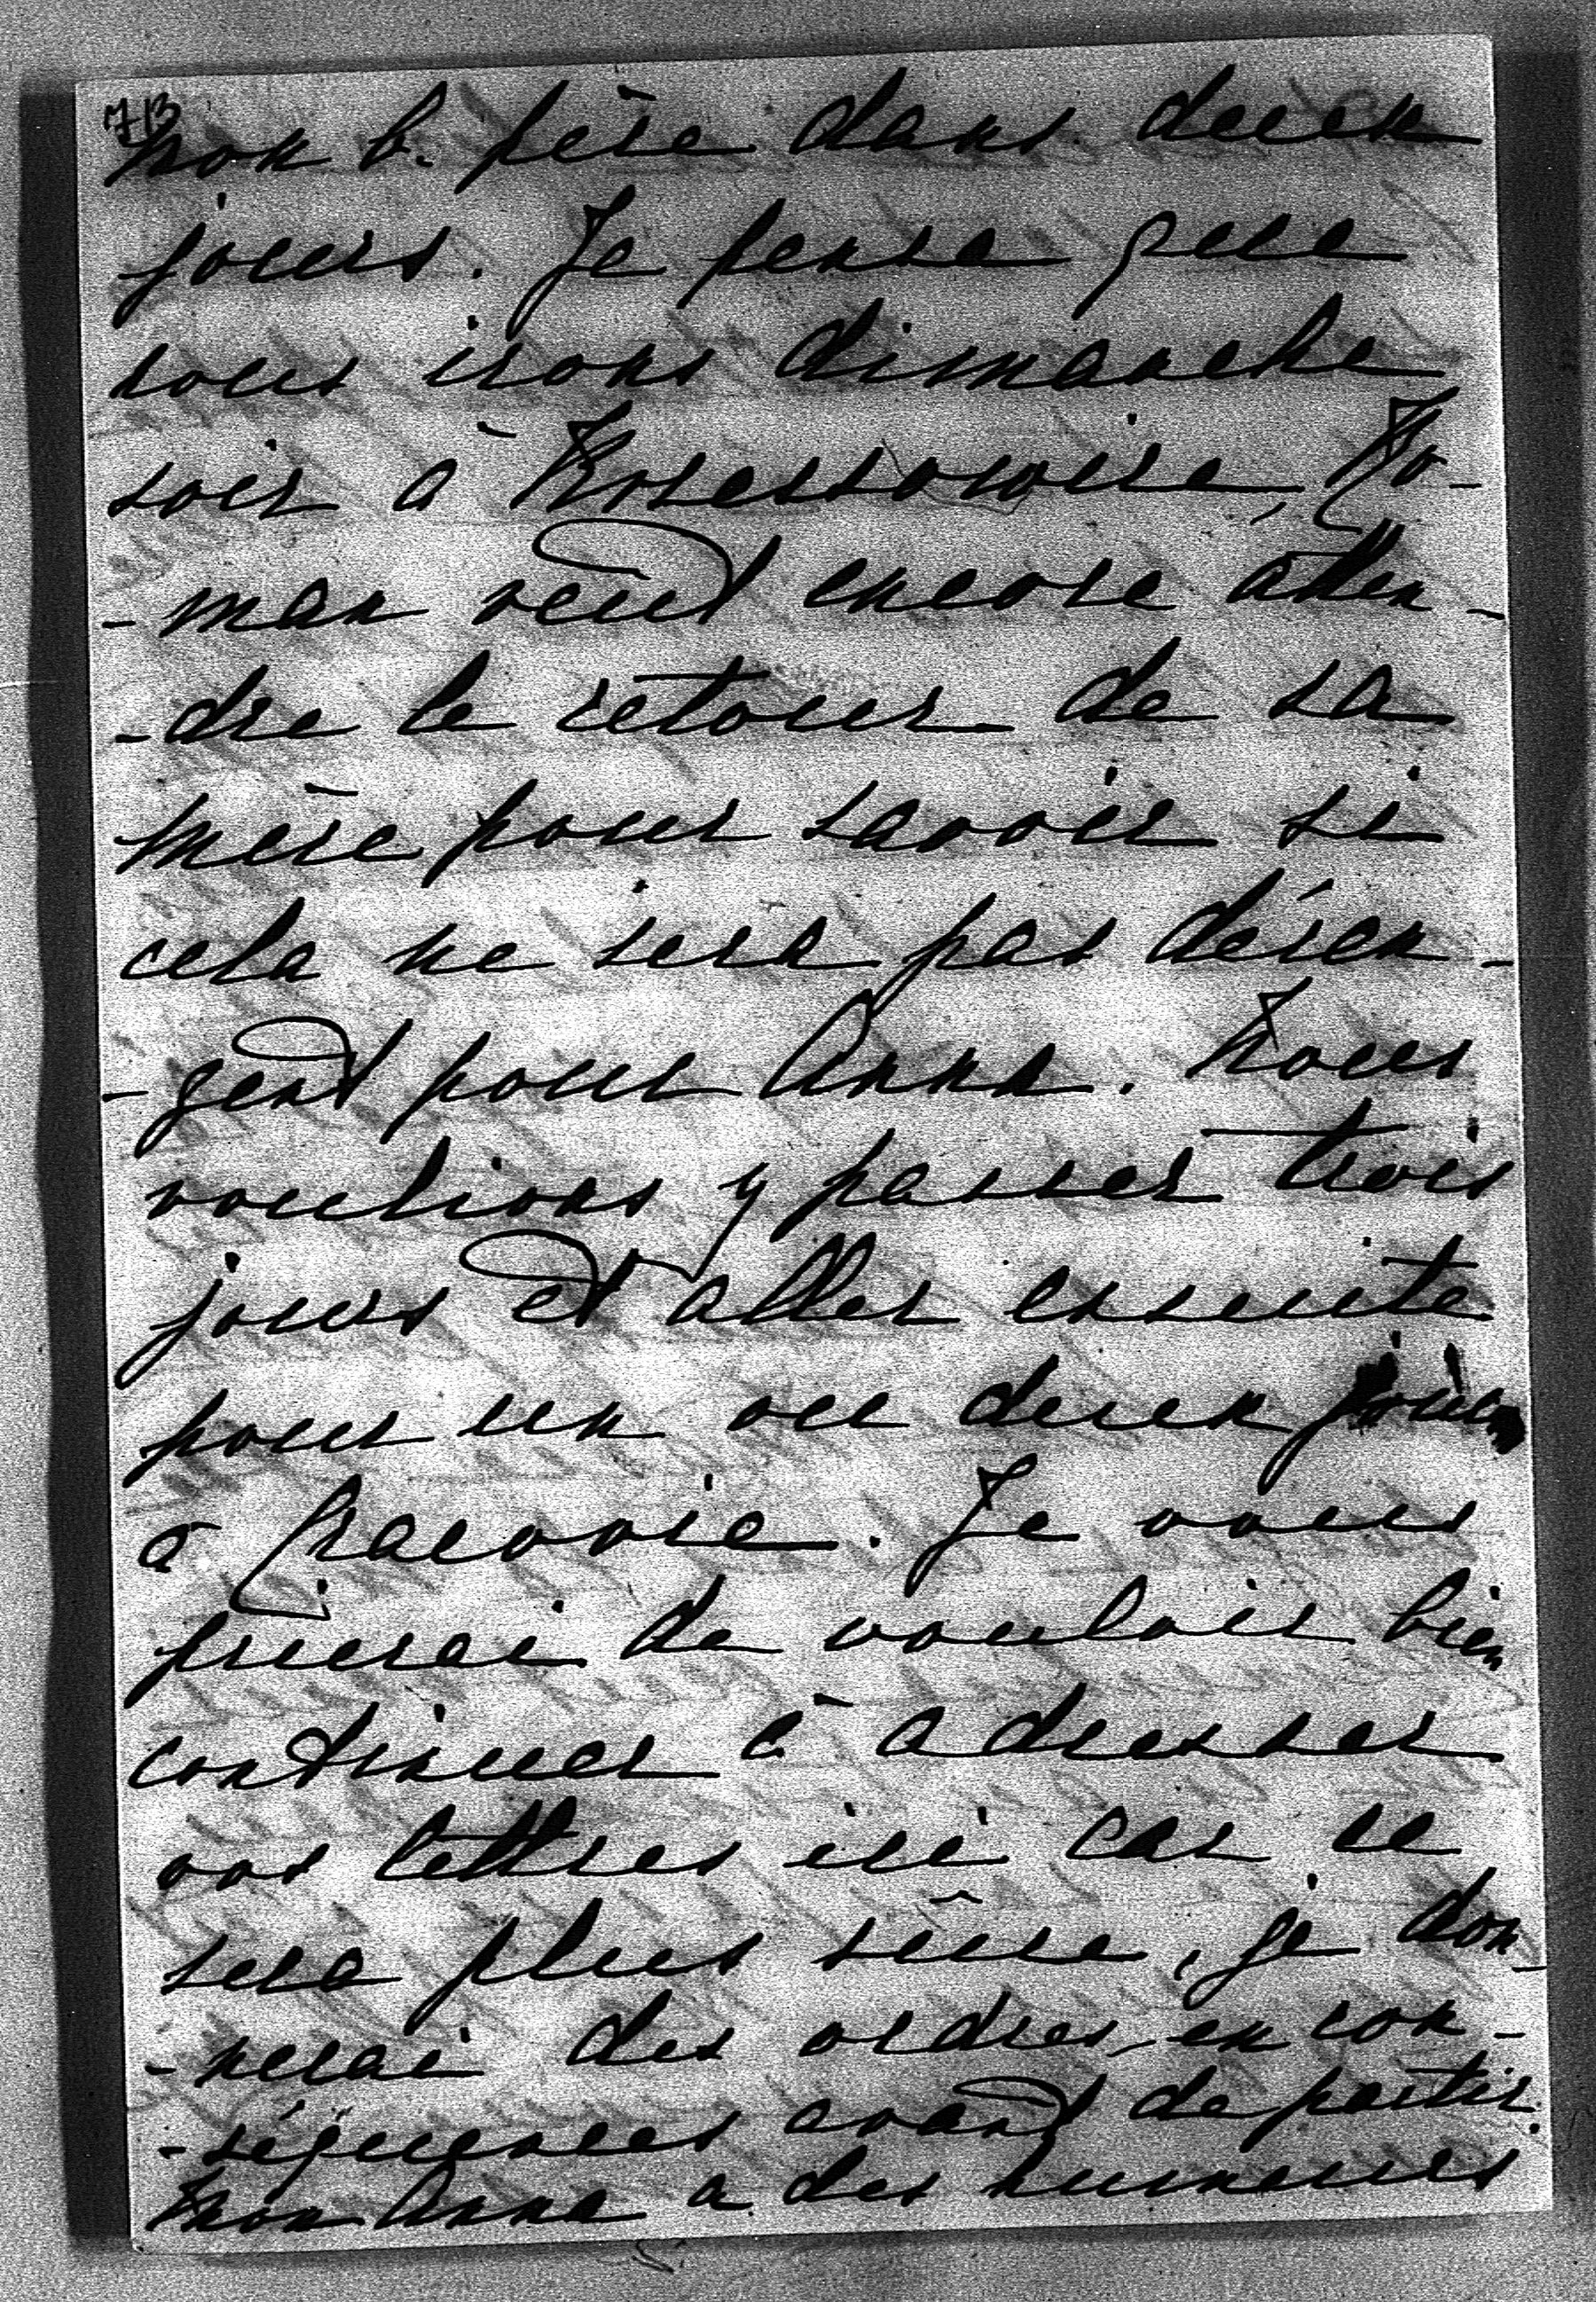 713
mon b. père dans deux
jours. Je pense que
nous irons dimanche
soir à Kozessowice, Ro-
-man veut encore atten-
-dre le retour de sa
mère pour savoir si
cela ne sera pas déran-
-gent pour Anna. Nous
voulions y passer trois
jours et aller ensuite
pour un ou deux jours
à Cracovie. Je vous
prierai de vouloir bien
continuer à adresser
vos lettres ici car ce
sera plus sûre, je don-
-nerai des ordres en con-
-séquences avant de partir.
Mon Anna a des humeurs